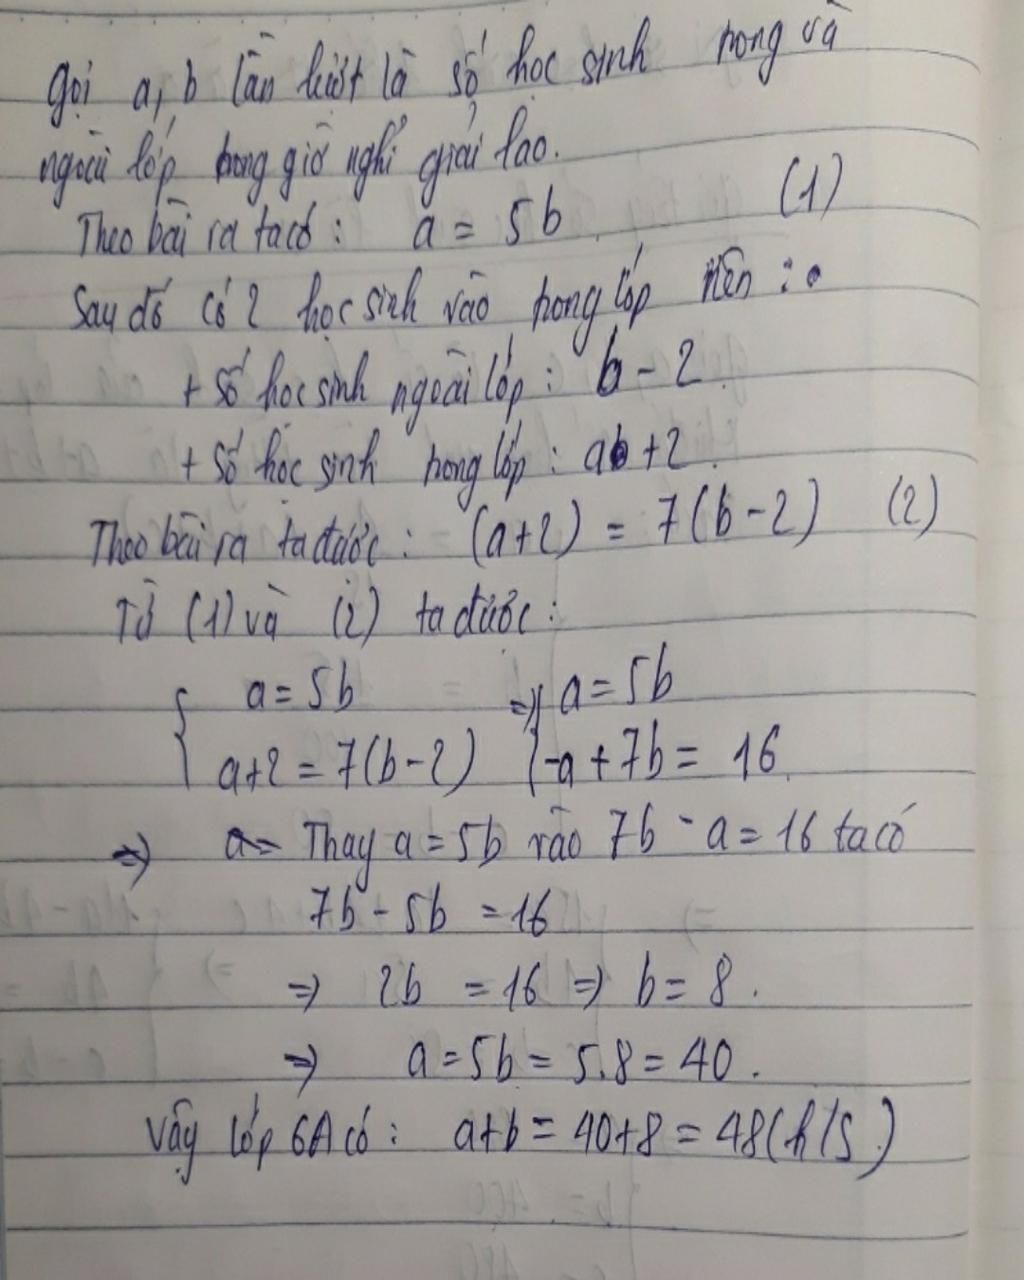 gọi a, b lần lượt là số học sinh trong và
ngoài lớp trong giờ nghỉ giải lao.
Theo bài ra ta có : a = 5b (1)
Sau đó có 2 học sinh vào trong lớp nên :
+ Số học sinh ngoài lớp : b - 2
+ Số học sinh trong lớp : a + 2
Theo bài ra ta được : (a+2) = 7(b-2) (2)
Từ (1) và (2) ta được :
a = 5b => a = 5b
a+2 = 7(b-2) -a + 7b = 16
=> Thay a = 5b vào 7b - a = 16 ta có
7b - 5b = 16
=> 2b = 16 => b = 8 .
=> a = 5b = 5.8 = 40 .
Vậy lớp 6A có : a+b = 40+8 = 48 (h/s)